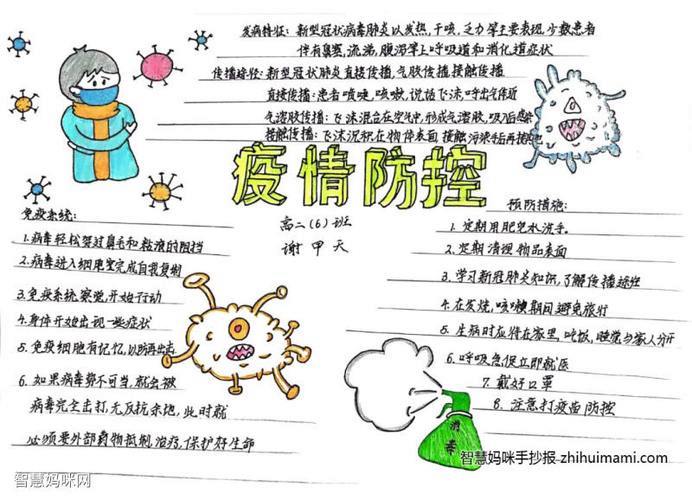 发病特征：新型冠状病毒肺炎以发热，干咳，乏力等主要表现，少数患者
伴有鼻塞，流涕，腹泻等上呼吸道和消化道症状
传播途径：新型冠状肺炎直接传播，气胶传播，接触传播
直接传播：患者喷嚏，咳嗽，说话飞沫，呼出气体近
气溶胶传播：飞沫混合在空气中，形成气溶胶，吸入后感染
接触传播：飞沫沉积在物体表面，接触污染手后再接触
疫情防控
高二（6）班
谢甲天
免疫系统：
1.病毒轻松努过鼻毛和粘液的阻挡
2.病毒进入细胞里完成自我复制
3.免疫系统察觉，开始行动
4.身体开始出现一些症状
5.免疫细胞有记忆，以防再出击
6.如果病毒势不可当，就会被
病毒完全击打，无反抗余地，此时就
必须要外部药物抵制治疗，保护好生命
预防措施：
1.定期用肥皂水洗手。
2.定期清理物品表面
3.学习新冠肺炎知识，了解传播途径
4.在发烧，咳嗽期间避免旅行
5.生病时应待在家里，吃饭，睡觉与家人分开
6.呼吸急促立即就医
7.戴好口罩
8.注意打疫苗防控
消毒
智慧妈咪网
智慧妈咪手抄报 zhihuimami.com